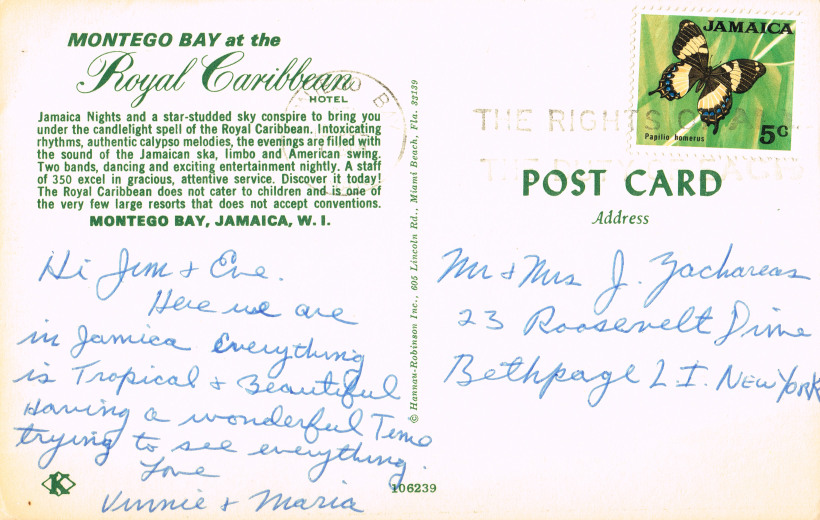 MONTEGO BAY at the
Royal Caribbean
HOTEL
Jamaica Nights and a star-studded sky conspire to bring you
under the candlelight spell of the Royal Caribbean. Intoxicating
rhythms, authentic calypso melodies, the evenings are filled with
the sound of the Jamaican ska, limbo and American swing.
Two bands, dancing and exciting entertainment nightly. A staff
of 350 excel in gracious, attentive service. Discover it today!
The Royal Caribbean does not cater to children and is one of
the very few large resorts that does not accept conventions.
MONTEGO BAY, JAMAICA, W. I.
Hi Jim & Eve.
Here we are
in Jamica Everything
is Tropical & Beautiful
Having a wonderful Time
trying to see everything.
Love
Vinnie & Maria
K
© Hannau-Robinson Inc., 605 Lincoln Rd., Miami Beach, Fla. 33139
106239
JAMAICA
Papilio homerus
5c
THE RIGHTS OF
THE DUTY OF
POST CARD
Address
Mr & Mrs J. Zachareas
23 Roosevelt Drive
Bethpage L I. NEW YORK